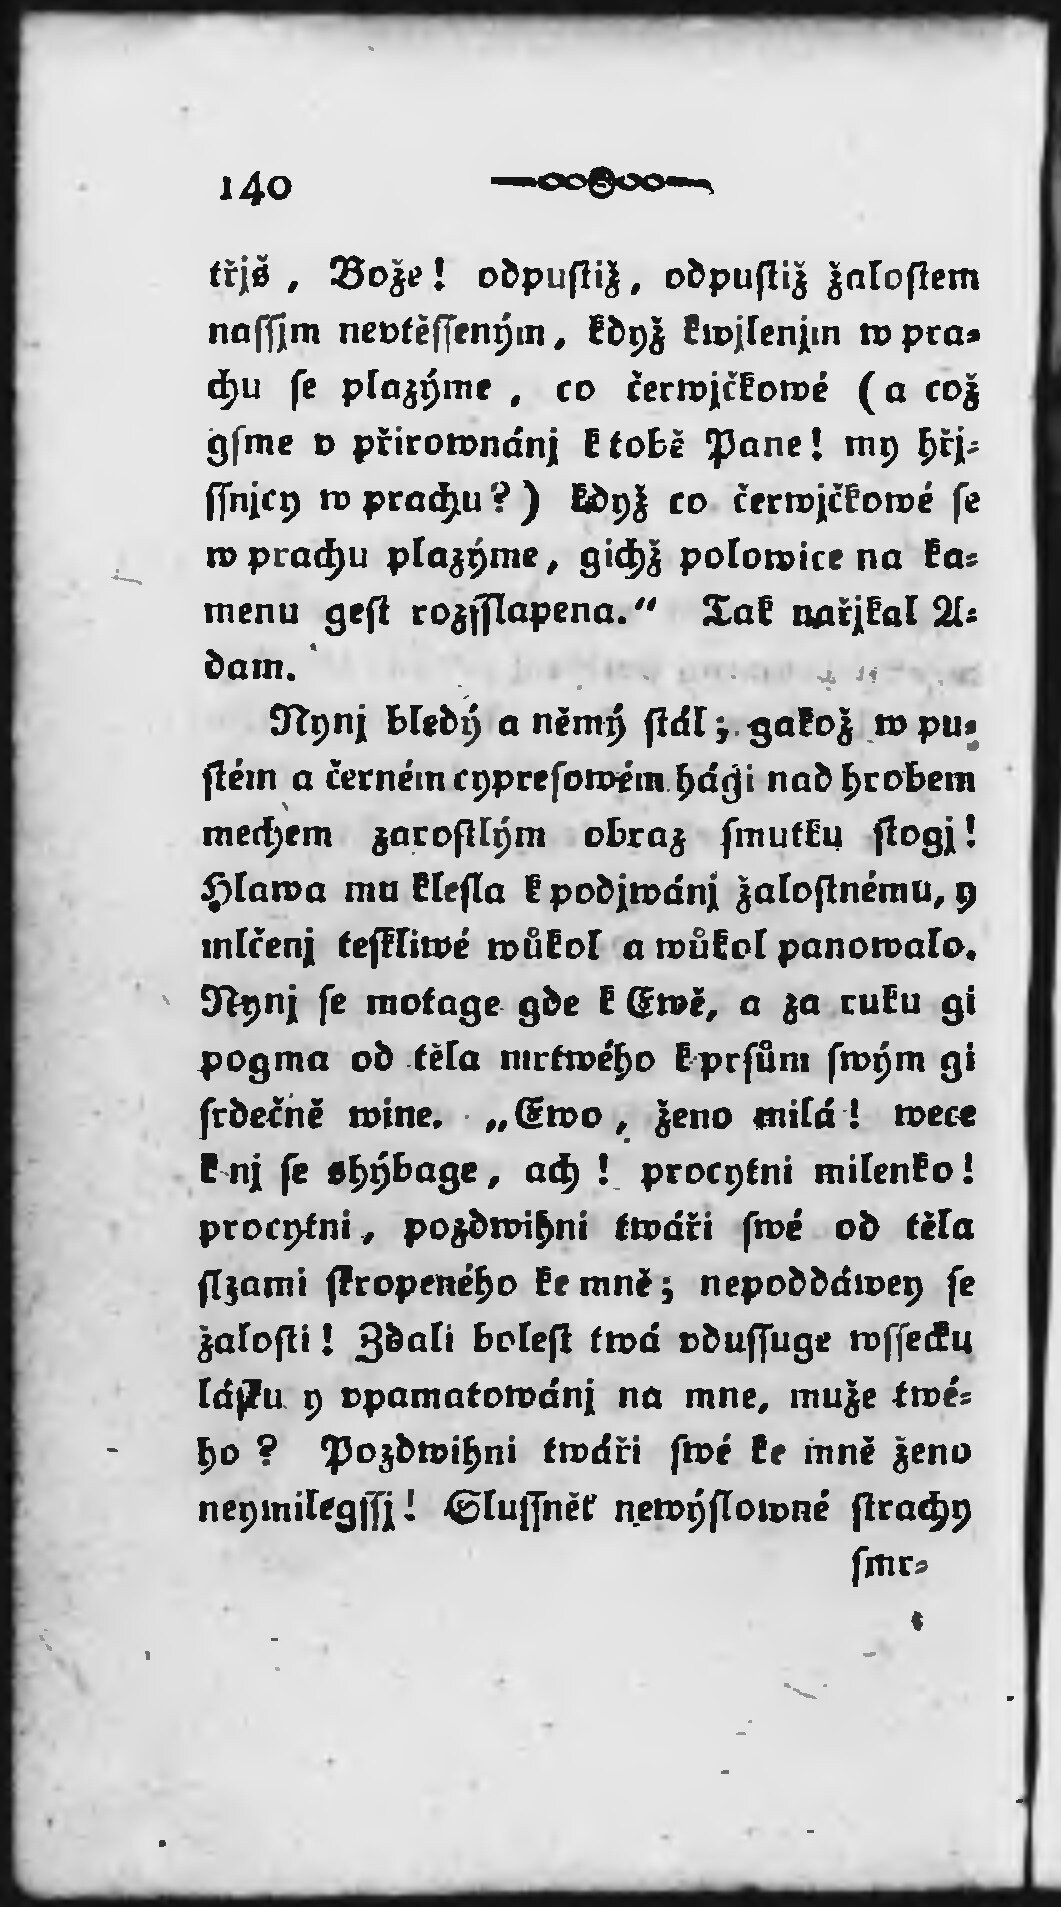 140
třjš, Bože! odpuſtiž, odpuſtiž žaloſtem
naſſjm nevtěſſeným, když kwjlenjm w pra-
chu ſe plazýme, co čerwjčkowé (a což
gſme v přirownánj k tobě Pane! my hřj-
ſſnjcy w prachu?) když co čerwjčkowé ſe
w prachu plazýme, gichž polowice na ka-
menu geſt rozſſlapena.“ Tak nařjkal A-
dam.
Nynj bledý a němý ſtál; gakož w pu-
ſtém a černém cypreſowém hági nad hrobem
mechem zaroſtlým obraz ſmutku ſtogj!
Hlawa mu kleſla k podjwánj žaloſtnému, y
mlčenj teſkliwé wůkol a wůkol panowalo.
Nynj ſe motage gde k Ewě, a za ruku gi
pogma od těla mrtwého k prſům ſwým gi
ſrdečně wine. „Ewo, ženo milá! wece
k nj ſe shýbage, ach! procytni milenko!
procytni, pozdwihni twáři ſwé od těla
ſlzami ſkropeného ke mně; nepoddáwey ſe
žaloſti! Zdali boleſt twá vduſſuge wſſecku
láſku y vpamatowánj na mne, muže twé-
ho? Pozdwihni twáři ſwé ke mně ženo
neymilegſſj! Sluſſněť newýſlowné ſtrachy
ſmr-